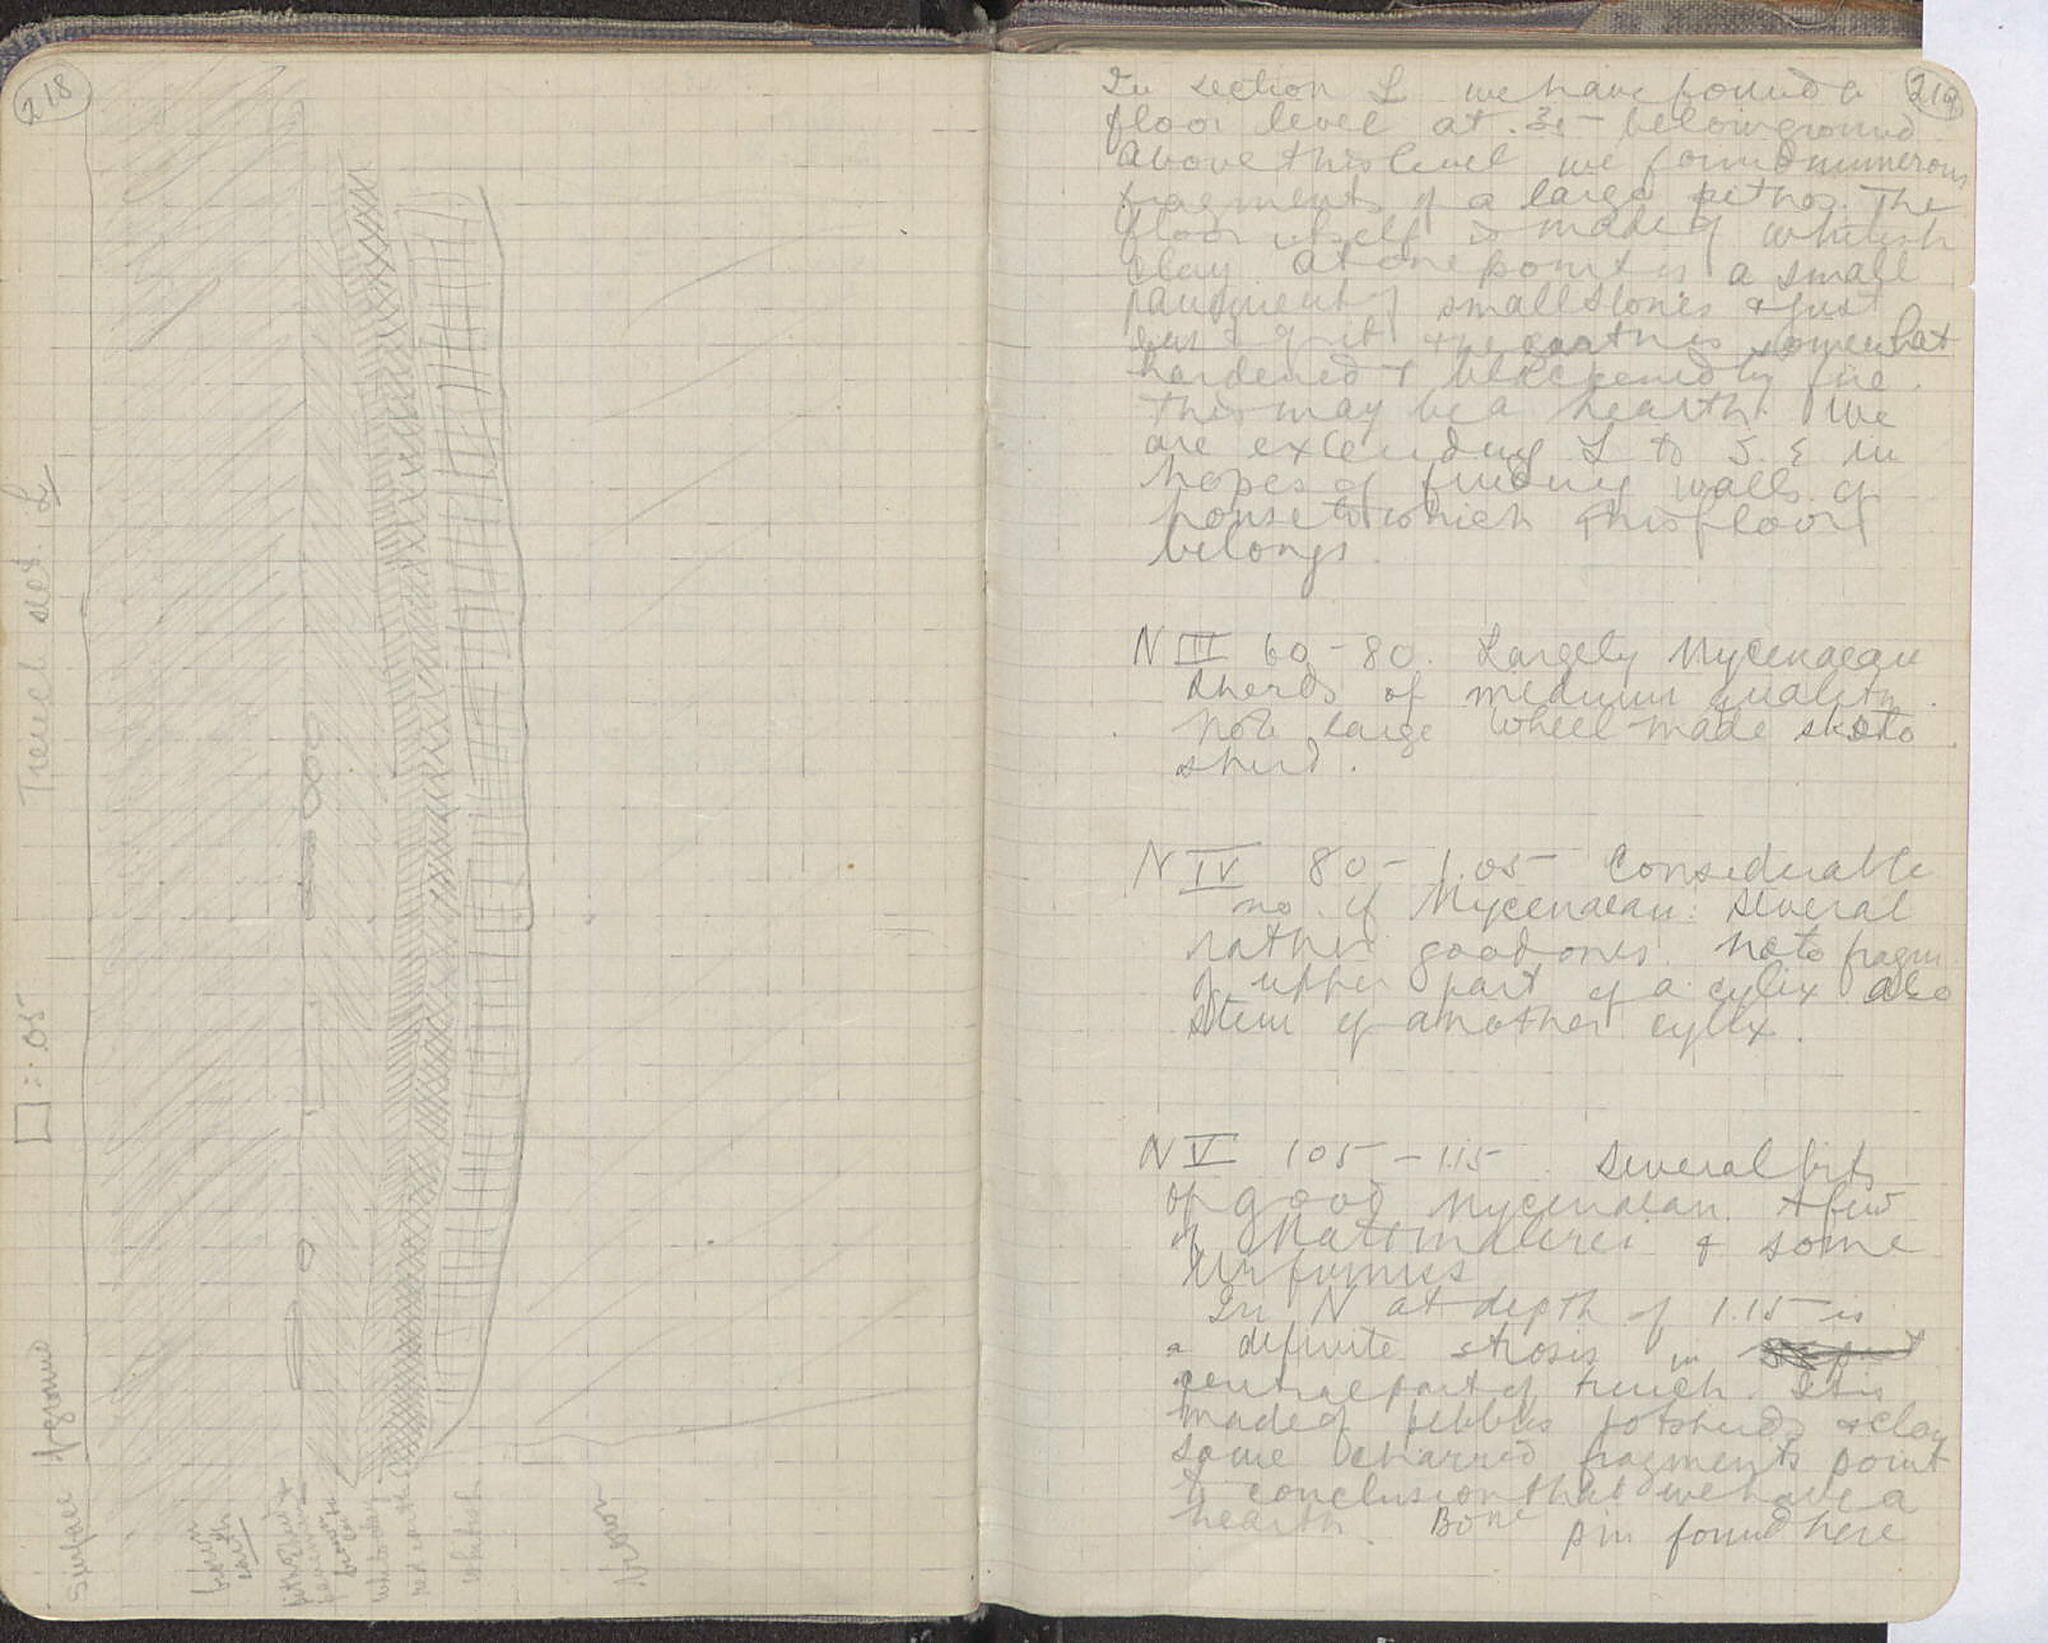 218
Trench sect. L
□ = .05
Surface of ground
brown
earth
pithos sherds +
pavement
brown
white clay
red earth
whitish
brown
219
In section L we have found a
floor level at .35 below ground
Above this level we found numerous
fragments of a large pithos. The
floor itself is made of whitish
clay At one point is a small
pavement of small stones & just
east of it the earth is somewhat
hardened & blackened by fire.
This may be a hearth. We
are extending L to S. E in
hopes of finding walls of
house to which this floor
belongs.
N III 60 - 80. Largely Mycenaean
sherds of medium quality.
Note large wheel made
sherd.
N IV 80 - 1.05 Considerable
no. of Mycenaean: several
rather good ones. Note fragm
of upper part of a cylix also
stem of another cylix.
N V 105 - 1.15 Several bits
of good Mycenaean + few
of Mattmalerei & some
Urfirniss
In N at depth of 1.15 is
a definite strosis in
central part of trench. It is
made of pebbles potsherds & clay
some charred fragments point
to conclusion that we have a
hearth. Bone pin found here